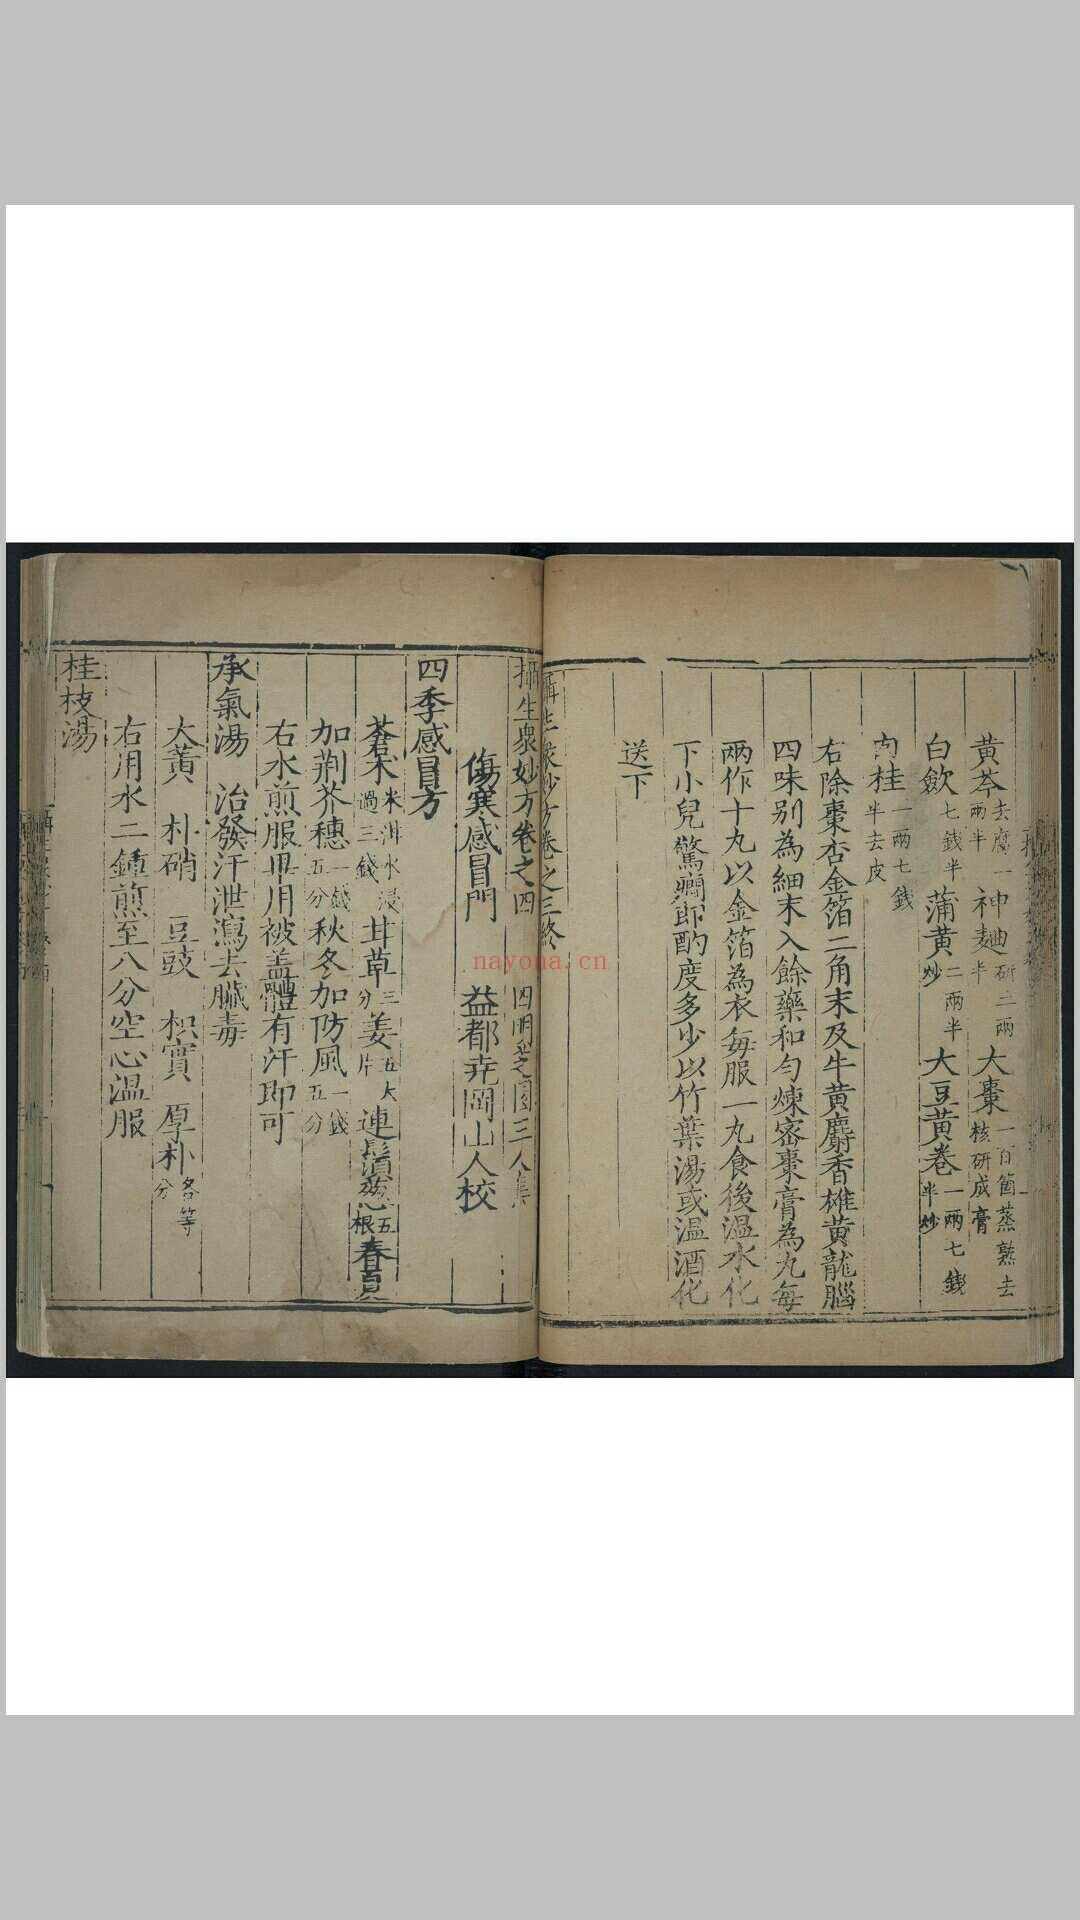 黄芩去腐一兩半 神麯研二兩半 大棗一百箇蒸熟去核研成膏
白斂七錢半 蒲黄二兩半炒 大豆黄卷一兩七錢半炒
肉桂一兩七錢半去皮
右除棗杏金箔二角末及牛黄麝香雄黄龍腦
四味别為細末入餘藥和勻煉宻棗膏為丸每
兩作十丸以金箔為衣每服一丸食後温水化
下小兒驚癇即酌度多少以竹葉湯或温酒化
送下
攝生衆妙方卷之三終
攝生衆妙方卷之四 四明芝園主人集
傷寒感冒門 益都尭岡山人校
四季感冒方
蒼朮米泔水浸過三錢 甘草三分 姜五大片 連鬚葱五根 春夏
加荆芥穗一錢五分 秋冬加防風一錢五分
右水煎服畢用被盖體有汗即可
承氣湯 治發汗泄瀉去臟毒
大黄 朴硝 豆豉 枳實 厚朴各等分
右用水二鍾煎至八分空心温服
桂枝湯
nayona.cn